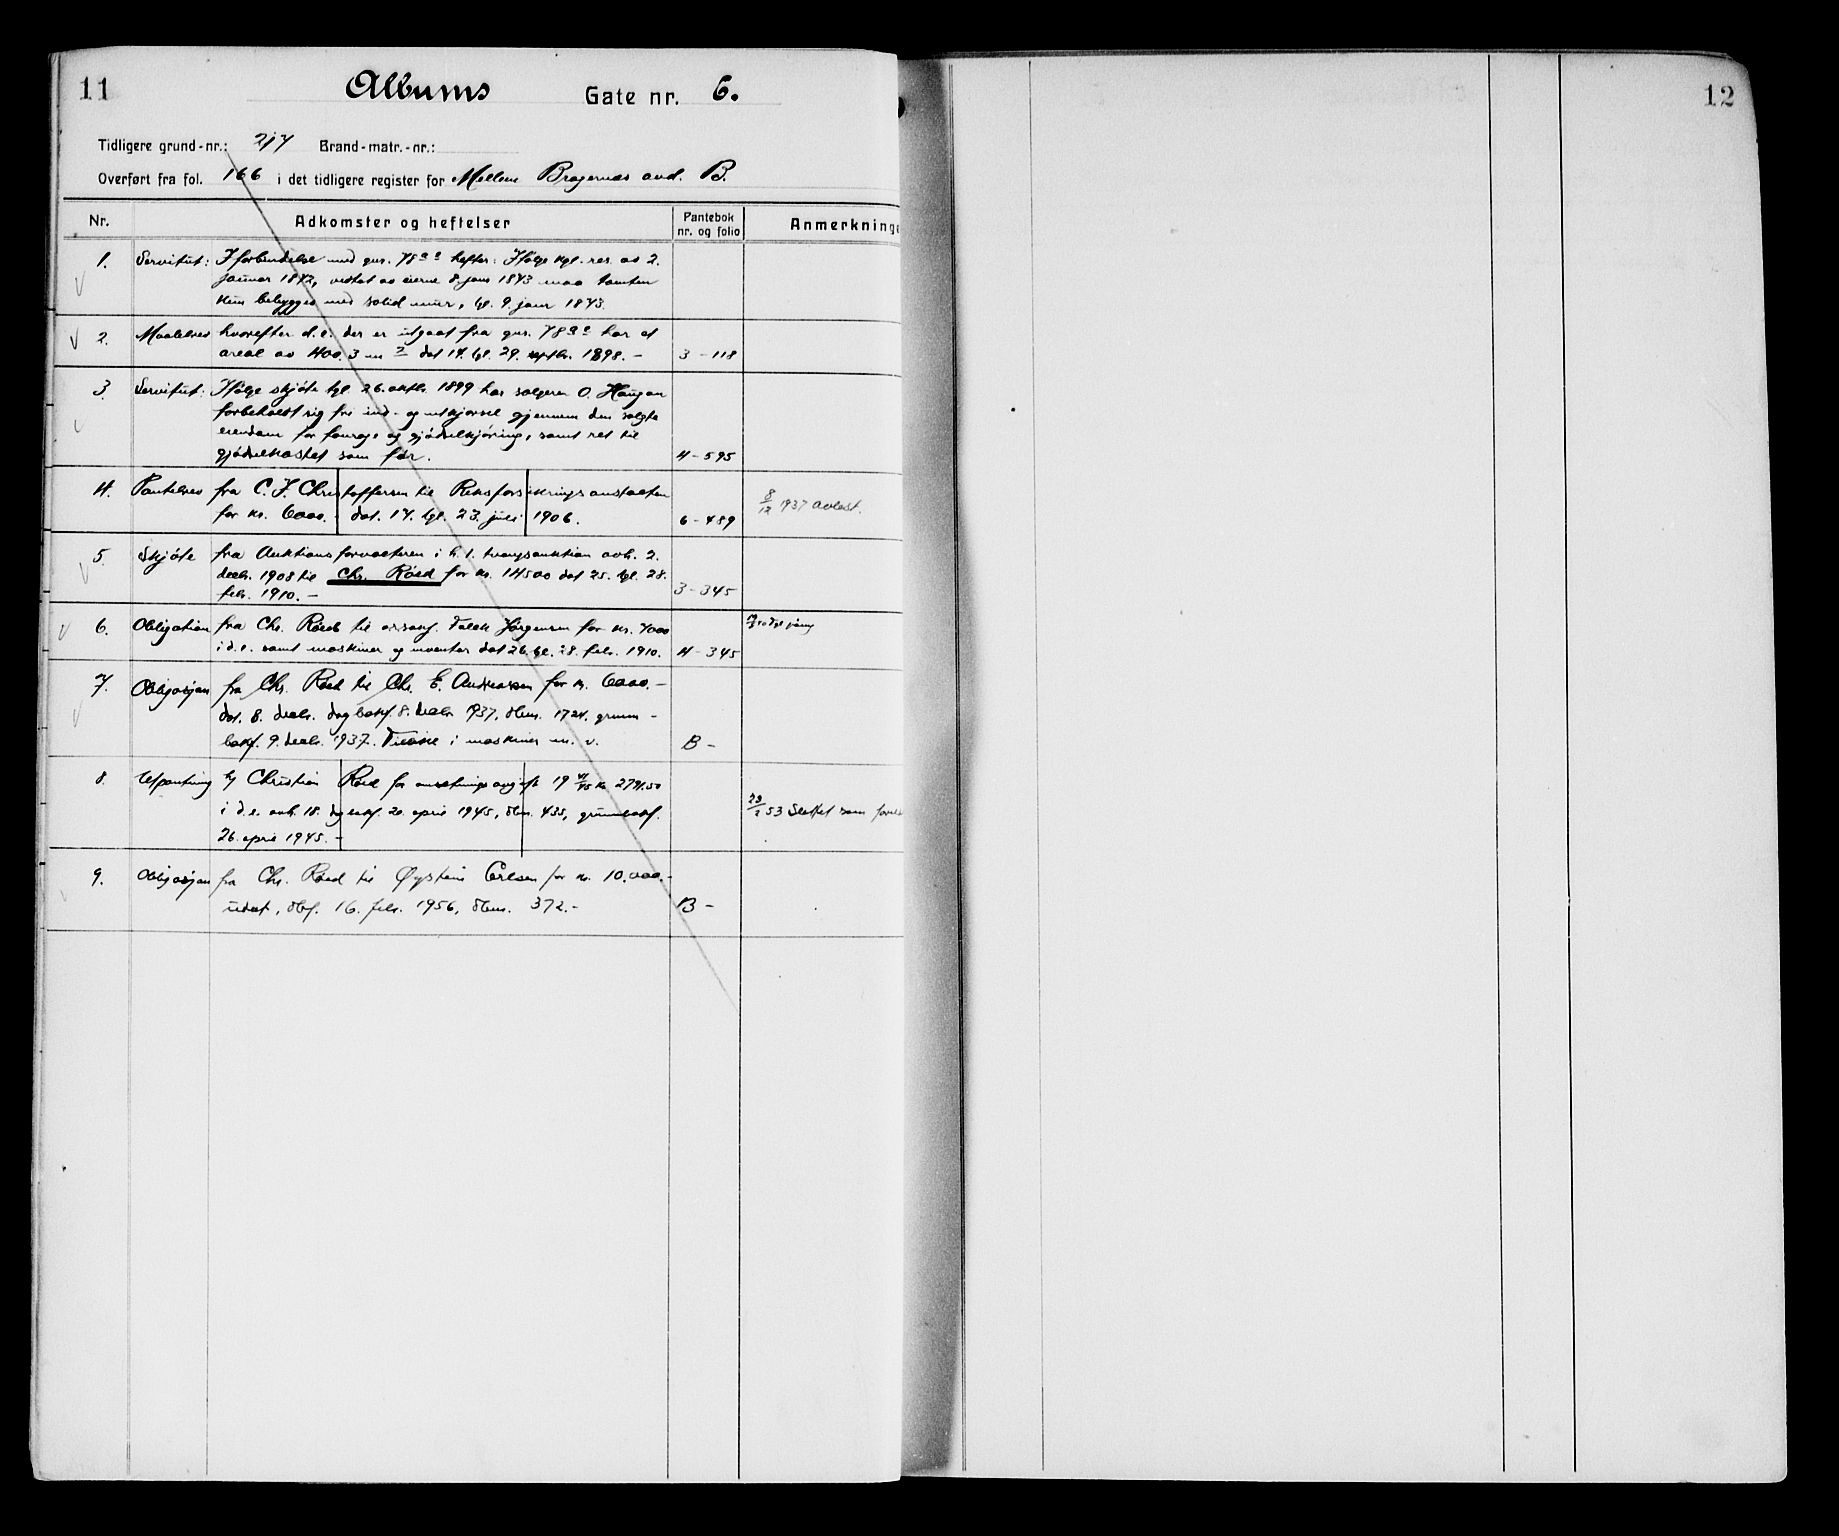 11
Albums Gate nr. 6.
Tidligere grund-nr.: 217 Brand-matr.-nr.:
Overført fra fol. 166 i det tidligere register for Mellem Bragernæs avd. B.
Nr. Adkomster og heftelser Pantebok nr. og folio Anmerkninge
1. Servitut: I forbindelse med gnr. 78 hefter: Ifølge kgl. res. av 2.
januar 1872, vedtat av eierne 8. janr 1873 maa tomten
kun bebygges med solid mur, tgl. 9. janr 1873.
2. Maalebrev hvorefter d.e. der er utgaat fra gnr. 78 har et
areal av 400.3 m 2 dat 17. tgl. 29. septbr. 1898. - 3 - 118
3. Servitut: Ifølge skjøte tgl. 26. oktbr. 1899 har sælgeren O. Haugan
forbeholdt sig fri ind- og utkjørsel gjennem den solgte
eiendom for fourage og gjødselkjøring, samt ret til
gjødselkastet som før. 4 - 595
4. Pantebrev fra C. F. Christoffersen til Riksforsikringsanstalten
for kr. 6000. - dat. 17. tgl. 23. juli 1906. 6 - 489 8/12 1937 avlest.
5. Skjøte fra Auktionsforvalteren i h. t. tvangsauktion avh. 2.
decbr. 1908 til Chr. Röed for kr. 14500 dat 25. tgl. 28.
febr. 1910. - 3 - 345
6. Obligation fra Chr. Röed til Falck Jørgensen for kr. 7000
i d.e. samt maskiner og inventar dat 26. tgl. 28. febr. 1910. 4 - 345
7. Obligasjon fra Chr. Röed til Chr. E. Andreassen for kr. 6000. -
dat. 8. decbr. dagbokf. 8. decbr 1937, dbnr. 1724. grunn-
bokf. 9. decbr. 1937. Tillike i maskiner m. v. B -
8. Utpantning hj Christian Röed for omsetningsavgift 19 44/45 kr 2794.50
i d.e. avh. 18. dagbokf. 20. april 1945, dbnr. 435, grunnbokf.
26. april 1945. - 53 Slettet som
9. Obligasjon fra Chr. Röed til Øystein Carlsen for kr. 10.000.-
udat, dbf. 16. febr. 1956, dbnr. 372.- B -
12